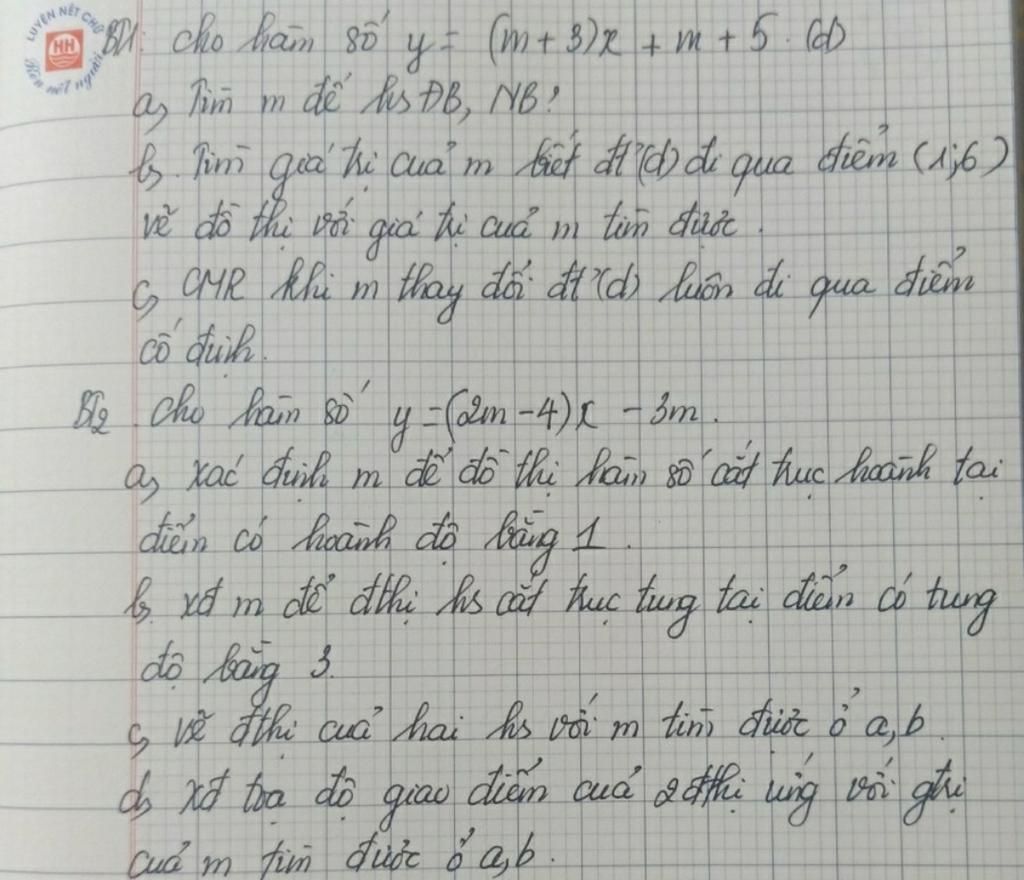 LUYỆN NÉT CHỮ
HH
Rèn nết người
BT1: Cho hàm số y = (m+3)x + m + 5 . (d)
a, Tìm m để hs ĐB, NB?
b, Tìm giá trị của m biết đt' (d) đi qua điểm (1;6)
vẽ đồ thị với giá trị của m tìm được.
c, CMR khi m thay đổi đt' (d) luôn đi qua điểm
cố định.
BT2 Cho hàm số y = (2m - 4)x - 3m.
a, xác định m để đồ thị hàm số cắt trục hoành tại
điểm có hoành độ bằng 1.
b, xđ m để đthị hs cắt trục tung tại điểm có tung
độ bằng 3.
c, vẽ đthị của hai hs với m tìm được ở a, b.
d, xđ tọa độ giao điểm của 2 đthị ứng với gtrị
của m tìm được ở a, b.